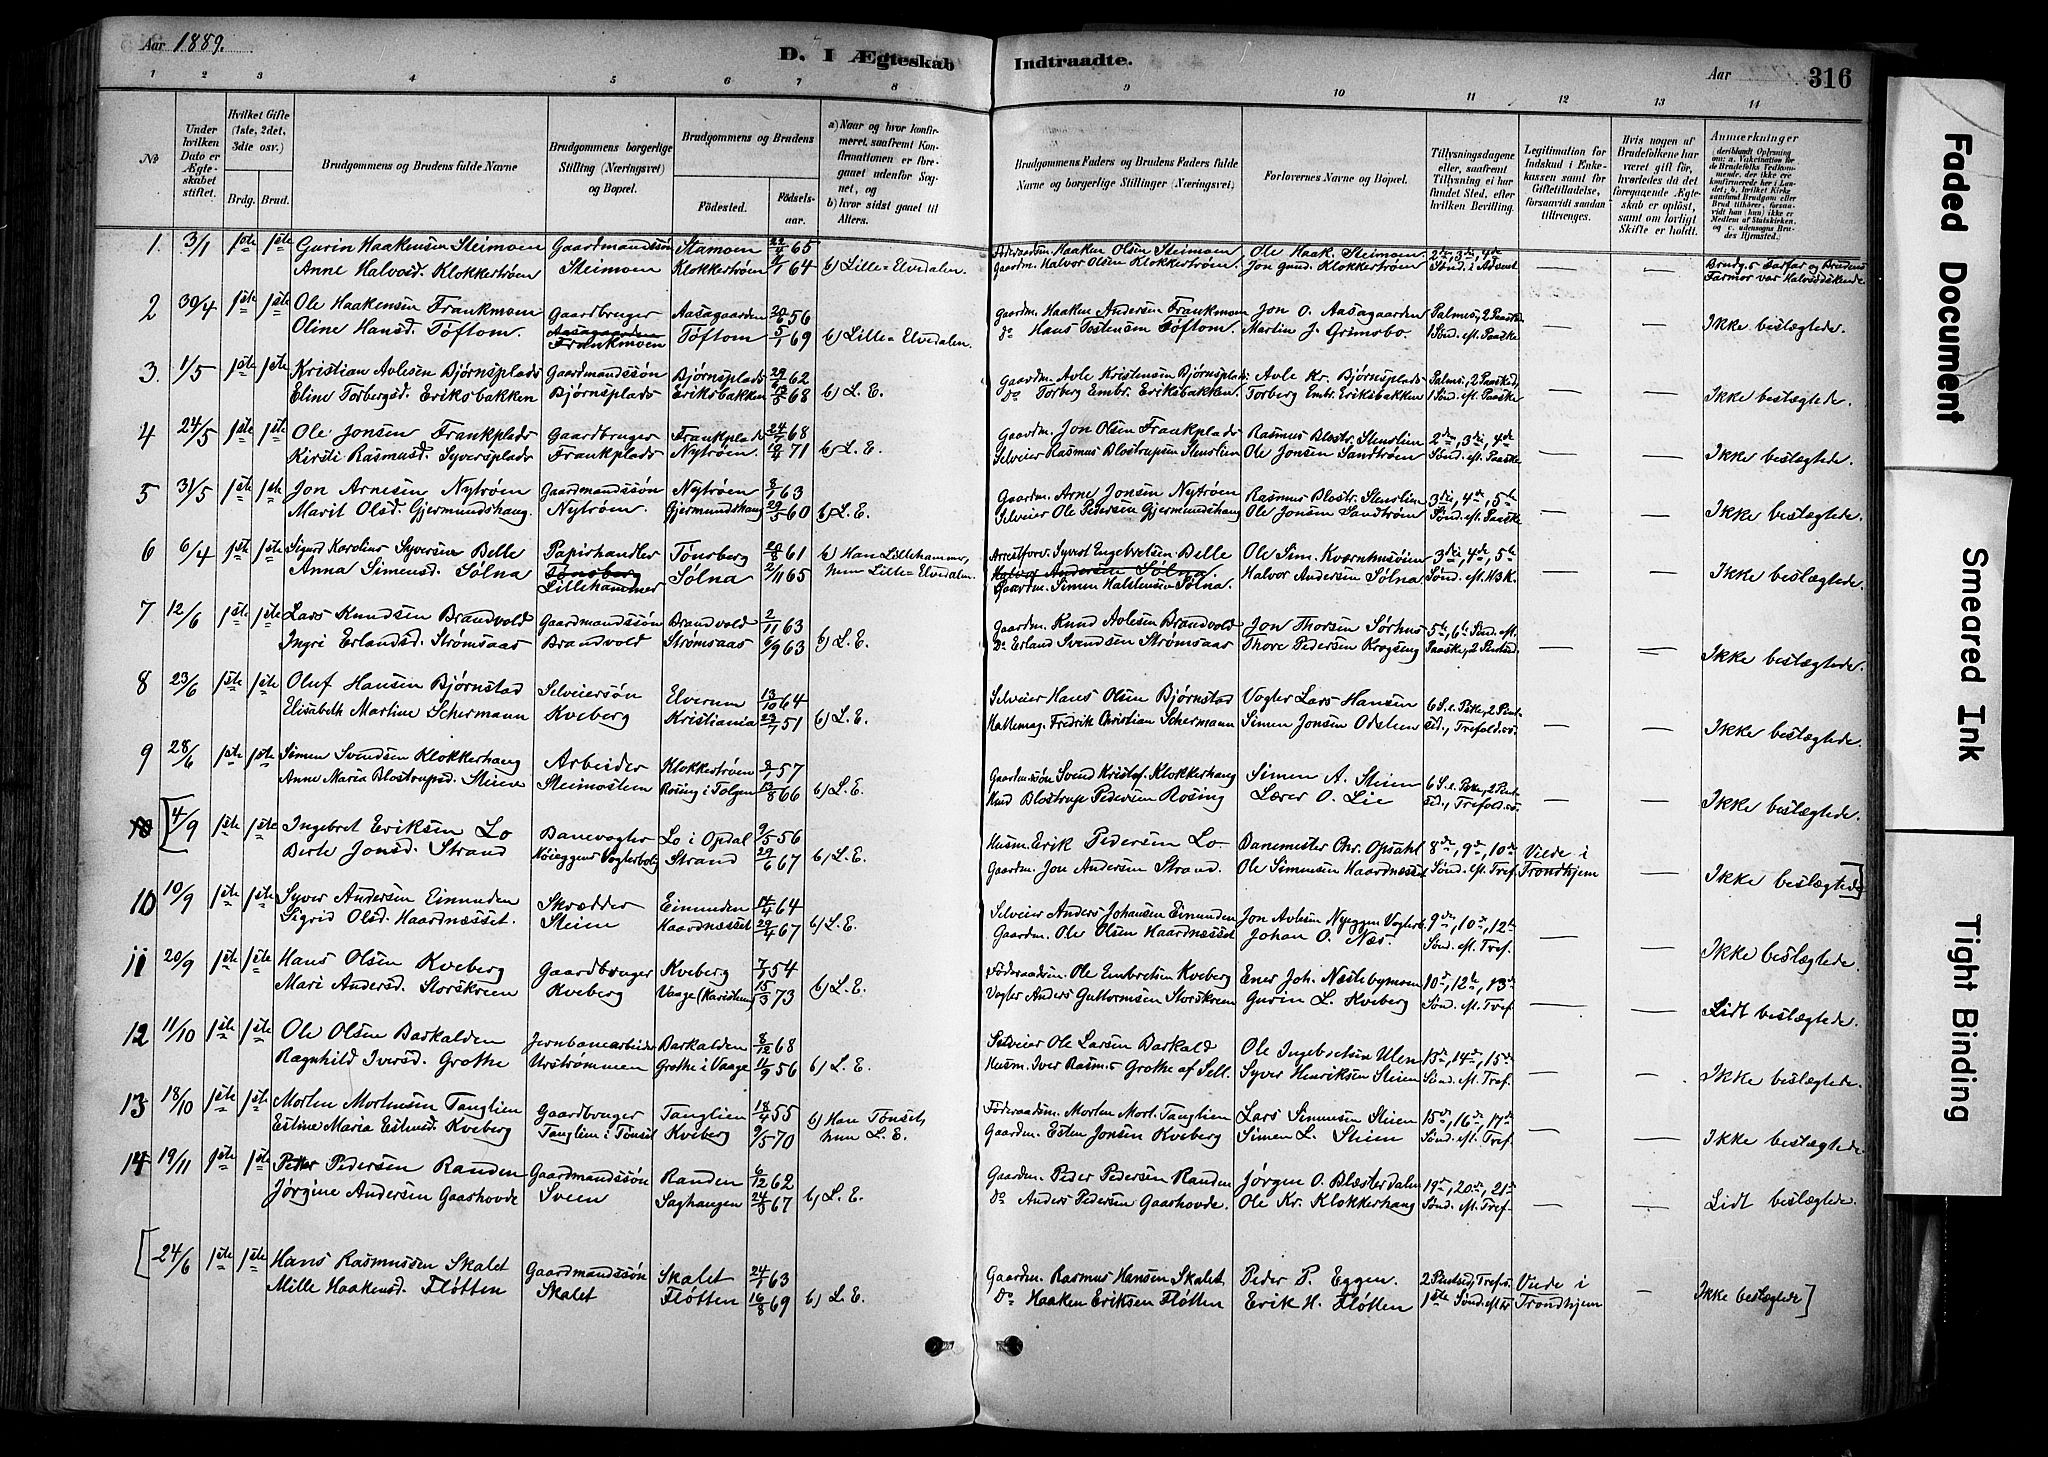 Aar 1889.
D. I Ægteskab Indtraadte.
Aar
316
1 2 3 4 5 6 7 8 9 10 11 12 13 14
No
Under hvilken Dato er Ægteskabet stiftet.
Hvilket Gifte (1ste, 2det, 3die osv.)
Brdg. Brud.
Brudgommens og Brudens fulde Navne
Brudgommens borgerlige Stilling (Næringsvei) og Bopæl.
Brudgommens og Brudens
Fødested. Fødselsaar.
a) Naar og hvor konfirmeret, saafremt Konfirmationen er foregaaet udenfor Sognet, og
b) hvor sidst gaaet til Alters.
Brudgommens Faders og Brudens Faders fulde Navne og borgerlige Stillinger (Næringsvei)
Forlovernes Navne og Bopæl.
Tillysningsdagene eller, saafremt Tillysning ei har fundet Sted, efter hvilken Bevilling.
Legitimation for Indskud i Enkekassen samt for Giftetilladelse, forsaavidt saadan tiltrænges.
Hvis nogen af Brudefolkene har været gift før, hvorledes da det foregaaende Ægteskab er opløst, samt om lovligt Skifte er holdt.
Anmærkninger
1. 3/1 1ste 1ste Gurin Haakensen Steimoen Gaardmandssøn Stamoen 22/4 65 Føderaadsm. Haaken Olsen Steimoen Ole Haak. Steimoen 2den, 3die, 4de
Anne Halvosd. Klokkertrøen Steimoen Klokkertrøen 64 b) Lille-Elvedalen. Gaardm. Halvor Olsen Klokkertrøen Jon Gund. Klokkertrøen Sønd. i Advent — — Brudg.s Farfar og Brudens Farmor var Halvsødskende
2 30/4 1ste 1ste Ole Haakensen Frankmoen Gaardbruger Aasagaarden 56 Gaardm. Haaken Andersen Frankmoen Jon O. Aasagaarden Palmes, 2 Paaske
Oline Hansd. Tøftom Aasagaarden Frankmoen Tøftom 5/1 69 b) Lille-Elvedalen. Do Hans Tostensen Tøftom Martin J. Grimsbo 1 Sønd. ef. Paaske — — Ikke beslægtede.
3. 1/5 1ste 1ste Kristian Avlesen Bjørnsplads Gaardmandssøn Bjørnsplads 62 Gaardm. Avle Kristensen Bjørnsplads Avle Kr. Bjørnsplads Palmes, 2 Paasked,
Eline Torbergsd. Eriksbakken Bjørnsplads Eriksbakken 68 b) L. E. Do Torberg Embr. Eriksbakken Torberg Embr. Eriksbakken 1 Sønd. eft. Paaske — — Ikke beslægtede.
4 24/5 1ste 1ste Ole Jonsen Frankplads Gaardbruger Frankplads 68 Gaardm. Jon Olsen Frankplads Rasmus Blostr. Stenslien 2den, 3die, 4de
Kirsti Rasmusd. Syversplads Frankplads Nytrøen 71 b) L. E. Selveier Rasmus Blostrupsen Stenslien Ole Jonsen Sandtrøen Sønd. eft. Paaske — — Ikke beslægtede.
5 31/5 1ste 1ste Jon Arnesen Nytrøen Gaardmandssøn Nytrøen 8/1 63 Gaardm. Arne Jonsen Nytrøen Rasmus Blostr. Stenslien 3die, 4de, 5te
Marit Olsd. Gjermundshaug. Nytrøen. Gjermundshaug 29/5 60 b) L. E. Selveier Ole Pedersen Gjermundshaug Ole Jonsen Sandtrøen Sønd. eft. Paaske — — Ikke beslægtede.
6 6/4 1ste 1ste Sigurd Karolius Syversen Belle Papirhandler Tønsberg 61 b) Han Lillehammer, Arrestforv. Syvert Engebretsen Belle Ole Sim. Kværnmusøien 3die, 4de, 5te
Anna Simensd. Sølna Tønsberg Lillehammer Sølna 2/11 65 hun Lille-Elvedalen. Halvor Andersen Sølna Gaardm. Simen Halstensen Sølna. Halvor Andersen Sølna Sønd. eft. H3K. — — Ikke beslægtede.
7 12/6 1ste 1ste Lars Knudsen Brandvold Gaardmandssøn Brandvold 2/11 63 Gaardm. Knud Avlesen Brandvold Jon Thorsen Sørhus 5te, 6te Sønd. eft.
Ingri Erlandsd. Strømsaas Brandvold Strømsaas 6/9 63 b) L. E. Do Erland Svendsen Strømsaas Thore Pedersen Krogseng Paaske, 2 Pintsed. — — Ikke beslægtede.
8 23/6 1ste 1ste Oluf Hansen Bjørnstad Selveiersøn Elverum 13/10 64 Selveier Hans Olsen Bjørnstad Vogter Lars Hansen 6 S. e. Pske, 2 Pint-
Elisabeth Martine Schermann Kveberg Kristiania 51 b) L. E. Hattemag. Fredrik Christian Schermann Simen Jonsen Odelien sed., Trefold.ss. — — Ikke beslægtede.
9 28/6 1ste 1ste Simen Svendsen Klokkerhaug Arbeider Klokkertrøen 57 Gaardm.ssøn Svend Kristof. Klokkerhaug Simen A. Steien 6 S. e. Pske, 2 Pint-
Anne Maria Blostrupsd. Steien Steimosletten Rosing i Tolgen 13/8 66 b) L. E. Husm. Blostrup Pedersen Rosing Lærer O. Lie sed., Trefold.ss. — — Ikke beslægtede.
10 [4/9 1ste 1ste Ingebret Eriksen Lo Banevogter Lo i Opdal 9/5 56 Husm. Erik Pedersen Lo Banemester Chr. Opsahl 8de, 9de, 10de Viede i
Berte Jonsd. Strand Nøieggens Vogterbolig Strand 29/6 67 b) L. E. Gaardm. Jon Andersen Strand. Ole Simensen Haardnæsset Sønd. eft. Tref. Trondhjem — Ikke beslægtede]
10 10/9 1ste 1ste Syver Andersen Einunden Skrædder Einunden 14/4 64 Selveier Anders Johansen Einunden Jon Avlesen Nyeggen Vogterb. 9de, 10de, 12te
Sigrid Olsd. Haardnæsset. Steien Haardnæsset 29/4 67 b) L. E. Gaardm. Ole Olsen Haardnæsset Johan O. Næs. Sønd. eft. Tref. — — Ikke beslægtede.
11 20/9 1ste 1ste Hans Olsen Kveberg Gaardbruger Kveberg 7/1 54 Føderaadsm. Ole Embretsen Kveberg Ener Joh. Næstebymoen 10de, 12te, 13de
Mari Andersd. Storskreen Kveberg Vaage (Karistien) 15/3 73 b) L. E. Vogter Anders Guttormsen Storskreen Gurin L. Kveberg Sønd. eft. Tref. — — Lidt beslægtede.
12 11/10 1ste 1ste Ole Olsen Barkalden Jernbanearbeider Barkalden 8/12 68 Selveier Ole Larsen Barkald Ole Ingebretsen Ulen 13de, 14de, 15de
Ragnhild Iversd. Grothe Urstrømmen Grothe i Vaage 11/9 56 b) L. E. Husm. Iver Rasm.s Grothe af Sell. Syver Henriksen Steien Sønd. eft. Tref. — — Ikke beslægtede.
13 18/10 1ste 1ste Morten Mortensen Tanglien Gaardbruger Tanglien 18/4 55 b) Han Tønset, Føderaadsm. Morten Mort. Tanglien Lars Simensen Steien 15de, 16de, 17de
Estine Maria Estensd. Kveberg Tanglien i Tønset Kveberg 9/5 70 hun L. E. Gaardm. Esten Jonsen Kveberg Simen L. Steien Sønd. eft. Tref. — — Ikke beslægtede.
14 19/11 1ste 1ste Peder Pedersen Randen Gaardmandssøn Randen 6/12 62 Gaardm. Peder Pedersen Randen Jørgen O. Blæsterdalen 19de, 20de, 21de
Jørgine Andersen Gaashovde Sveen Saghaugen 24/8 67 b) L. E. Do Anders Pedersen Gaashovde. Ole Kr. Klokkerhaug Sønd. eft. Tref. — — Lidt beslægtede.
[ 24/6 1ste 1ste Hans Rasmussen Skalet Gaardmandssøn Skalet 24/1 63 Gaardm. Rasmus Hansen Skalet Peder P. Eggen. 2 Pintsed, Tref.s. Viede i
Mille Haakensd. Fløtten Skalet Fløtten 16/8 69 b) L. E. Do Haaken Eriksen Fløtten Erik H. Fløtten 1ste Sønd. eft Tr Trondhjem — Ikke beslægtede]
Faded Document
Smeared Ink
Tight Binding